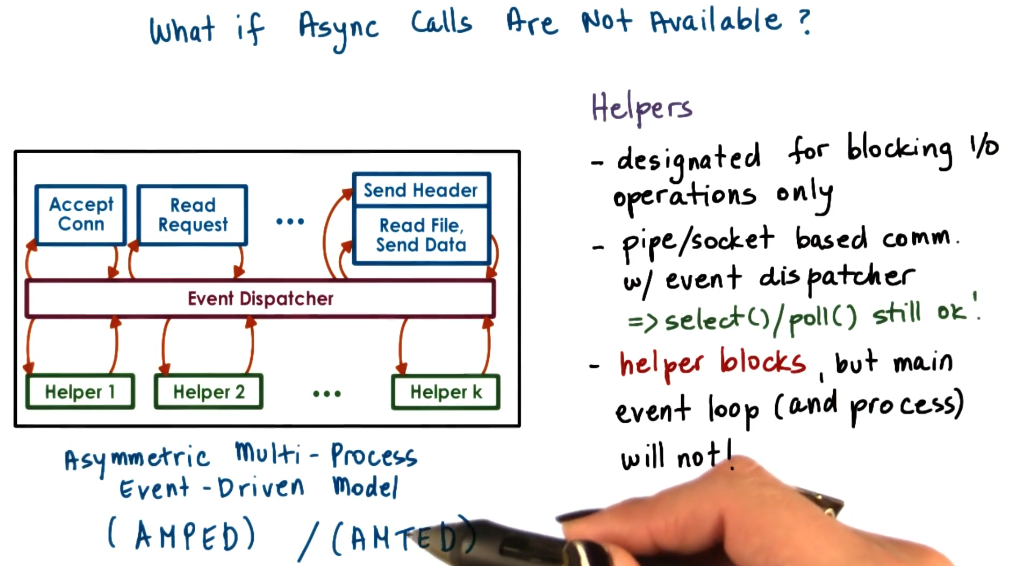 What if Async Calls Are Not Available?
Accept
Conn
Read
Request
...
Send Header
Read File,
Send Data
Event Dispatcher
Helper 1
Helper 2
...
Helper k
Asymmetric Multi-Process
Event-Driven Model
(AMPED) / (AMTED)
Helpers
- designated for blocking I/O
operations only
- pipe/socket based comm.
w/ event dispatcher
=> select()/poll() still ok!
- helper blocks, but main
event loop (and process)
will not!